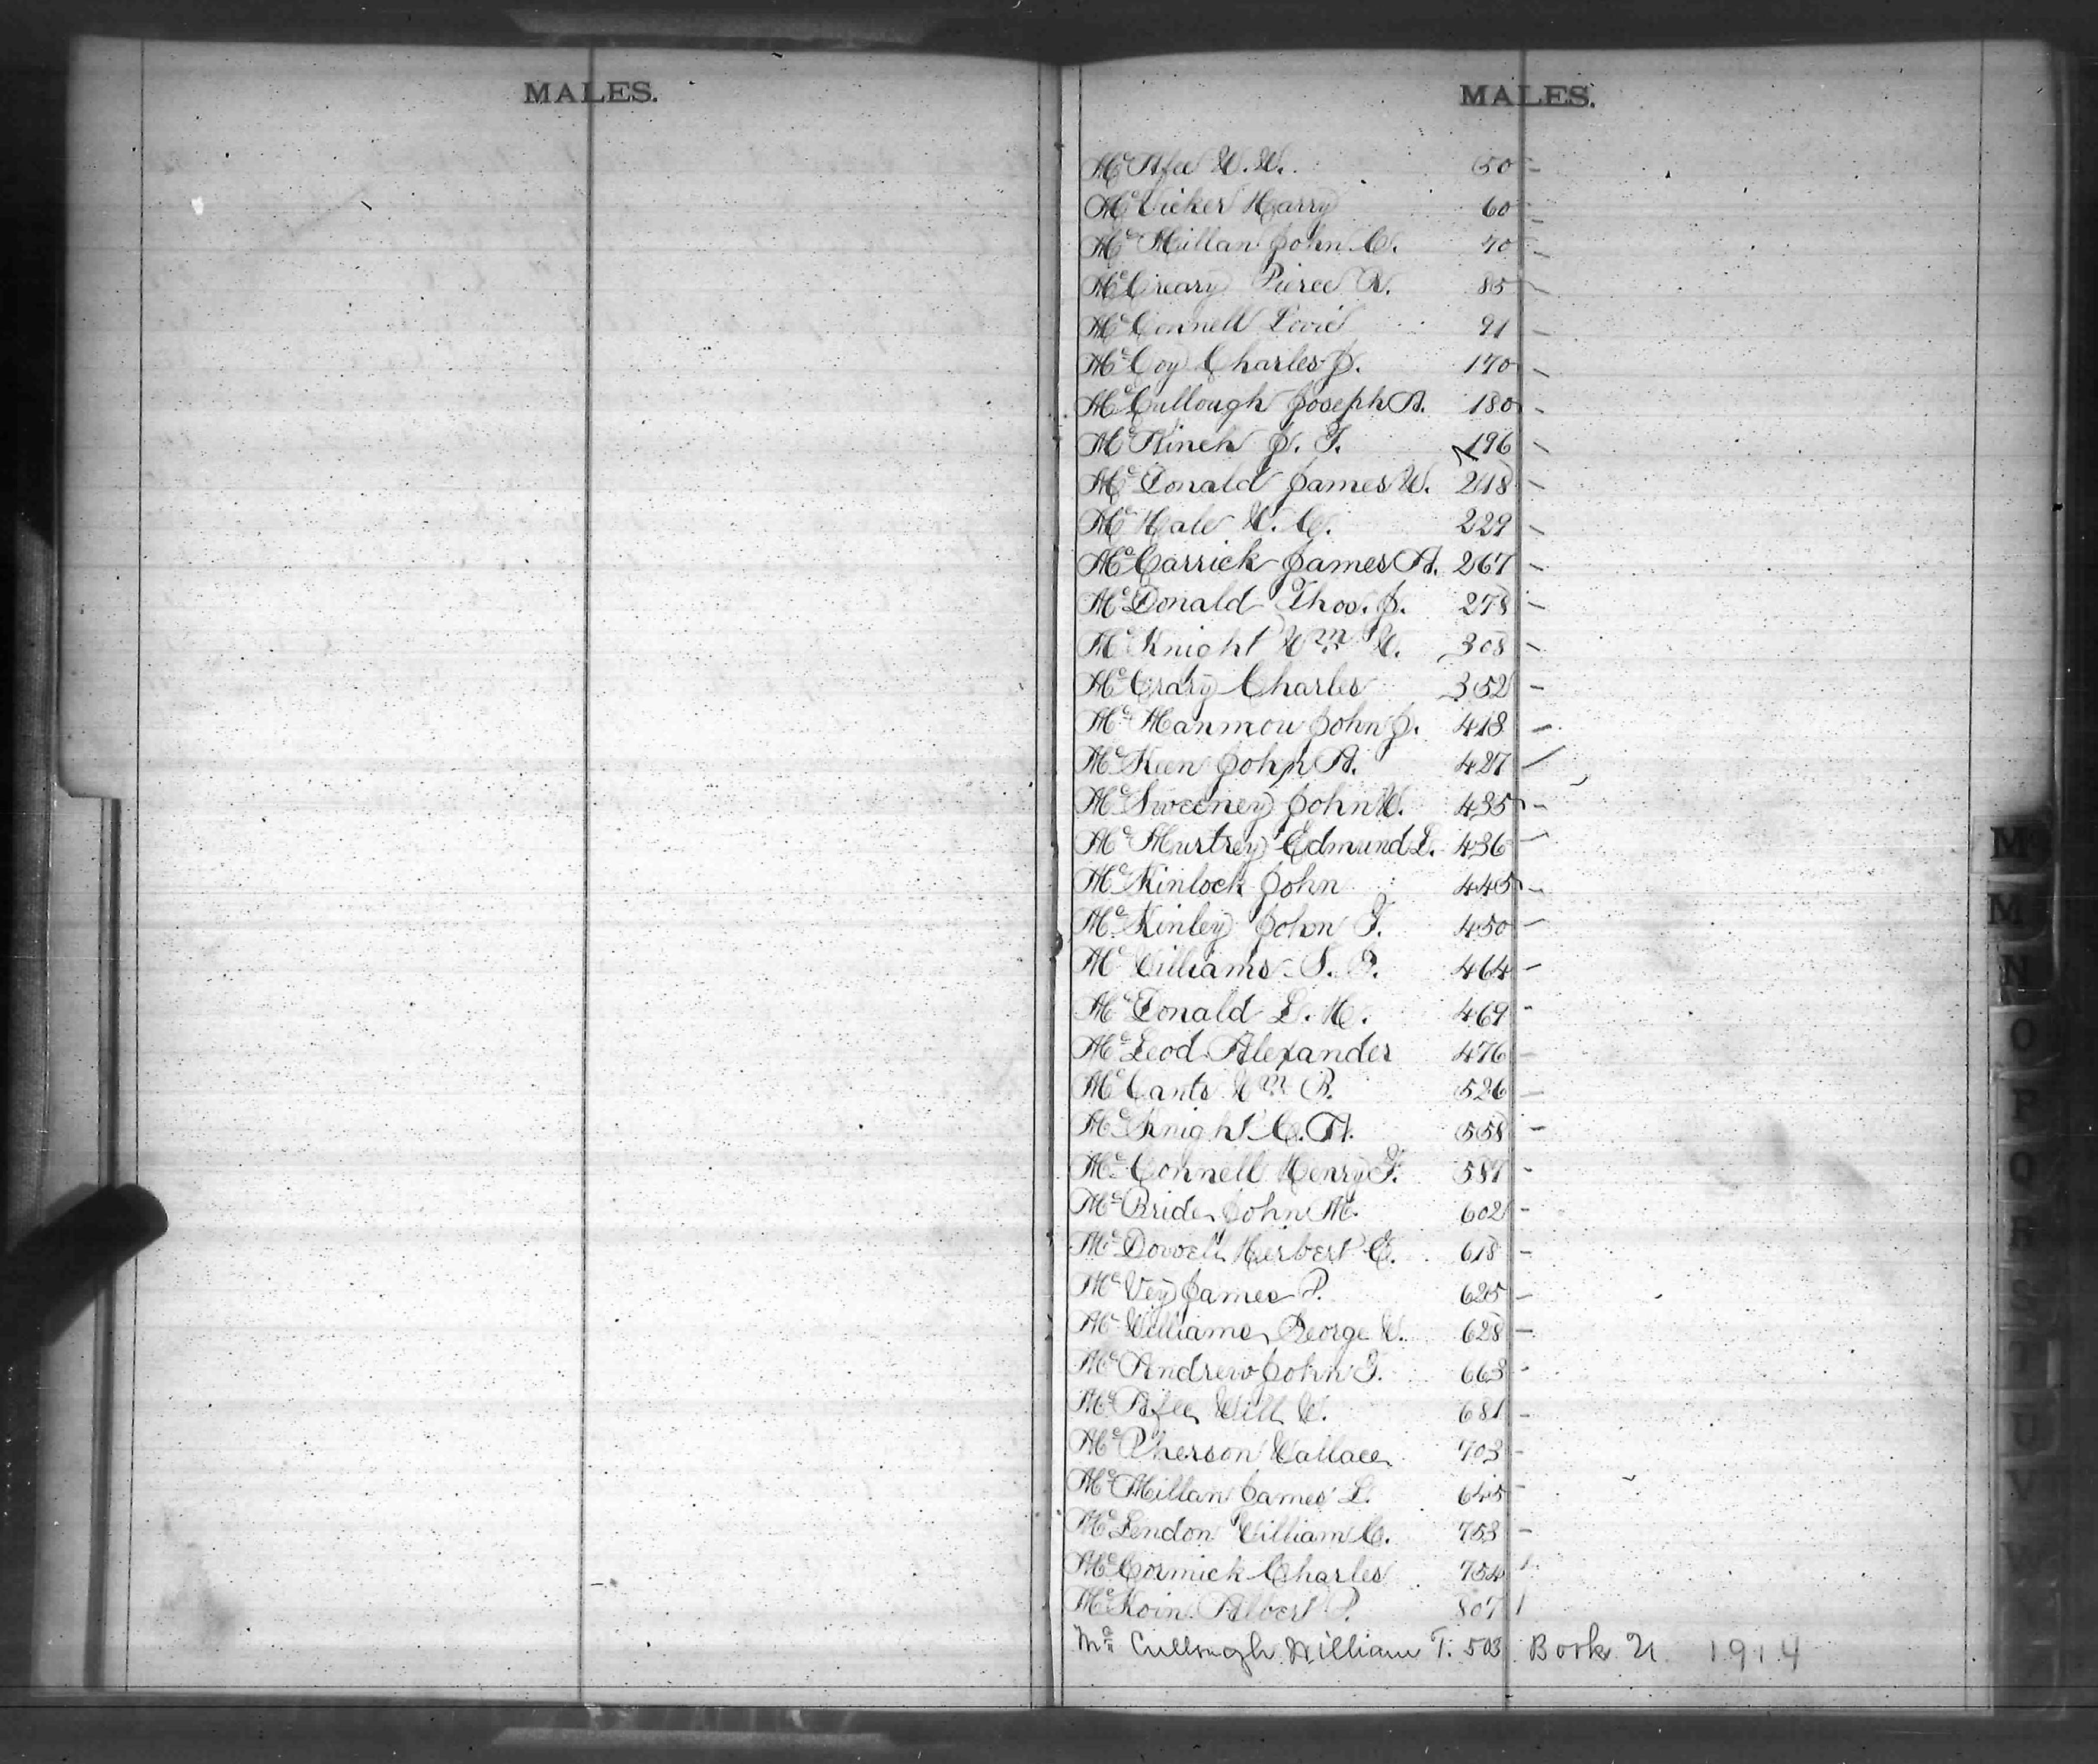 MALES.
MALES.
McAfee W. W. 50
McVicker Harry 60
McMillan John C. 70
McCreary Pierce R. 85
McConnell Lovie 91
McCoy Charles J. 170
McCullough Joseph A. 180
McAinch J. T. 196
McDonald James W. 218
McHale W. C. 229
McCarrick James A. 267
McDonald Thos. J. 278
McKnight Wm W. 308
McCrary Charles 352
McManmon John J. 418
McKeen John A. 427
McSweeney John W. 435
McMurtrey Edmund L. 436
McKinlock John 445
McKinley John T. 450
McWilliams S. P. 464
McDonald L. H. 469
McLeod Alexander 476
McCants Wm R. 526
McKnight C. A. 558
McConnell Henry F. 587
McBride John M. 602
McDowell Herbert E. 618
McVey James P. 625
McWilliams George W. 628
McAndrew John T. 663
McAfee Will W. 681
McPherson Wallace 703
McMillan James L. 645
McLendon William C. 753
McCormick Charles 754
McKoin Albert P. 807
Mc Cullough William T. 503 Book 21 1914
M
M
N
O
P
Q
R
S
T
U
V
W